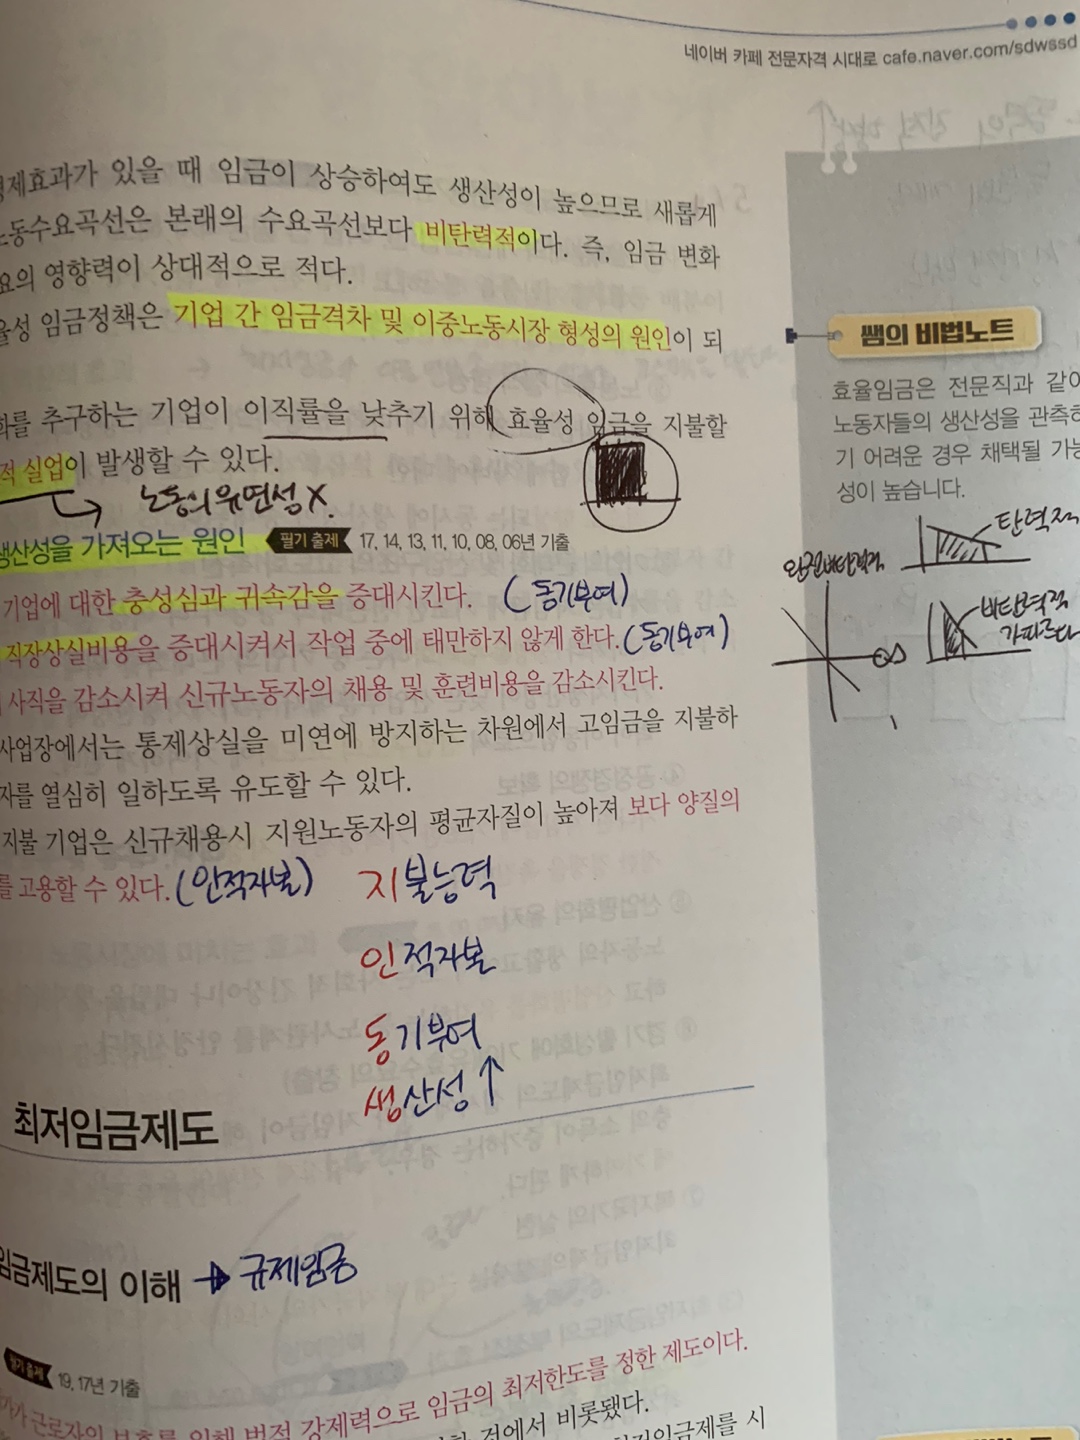 네이버 카페 전문자격 시대로 cafe.naver.com/sdwssd
경제효과가 있을 때 임금이 상승하여도 생산성이 높으므로 새롭게
노동수요곡선은 본래의 수요곡선보다 비탄력적이다. 즉, 임금 변화
요의 영향력이 상대적으로 적다.
율성 임금정책은 기업 간 임금격차 및 이중노동시장 형성의 원인이 되
화를 추구하는 기업이 이직률을 낮추기 위해 효율성 임금을 지불할
적 실업이 발생할 수 있다.
노동의 유연성 X.
생산성을 가져오는 원인 필기 출제 17, 14, 13, 11, 10, 08, 06년 기출
기업에 대한 충성심과 귀속감을 증대시킨다. (동기부여)
직장상실비용을 증대시켜서 작업 중에 태만하지 않게 한다. (동기부여)
사직을 감소시켜 신규노동자의 채용 및 훈련비용을 감소시킨다.
사업장에서는 통제상실을 미연에 방지하는 차원에서 고임금을 지불하
자를 열심히 일하도록 유도할 수 있다.
지불 기업은 신규채용시 지원노동자의 평균자질이 높아져 보다 양질의
를 고용할 수 있다. (인적자본)
지불능력
인적자본
동기부여
생산성 ↑
쌤의 비법노트
효율임금은 전문직과 같이
노동자들의 생산성을 관측하
기 어려운 경우 채택될 가능
성이 높습니다.
탄력적
완전비탄력적
비탄력적
가파르다
최저임금제도
임금제도의 이해 → 규제임금
필기 출제 19, 17년 기출
근로자의 보호를 위해 법적 강제력으로 임금의 최저한도를 정한 제도이다.
것에서 비롯됐다.
최저임금제를 시